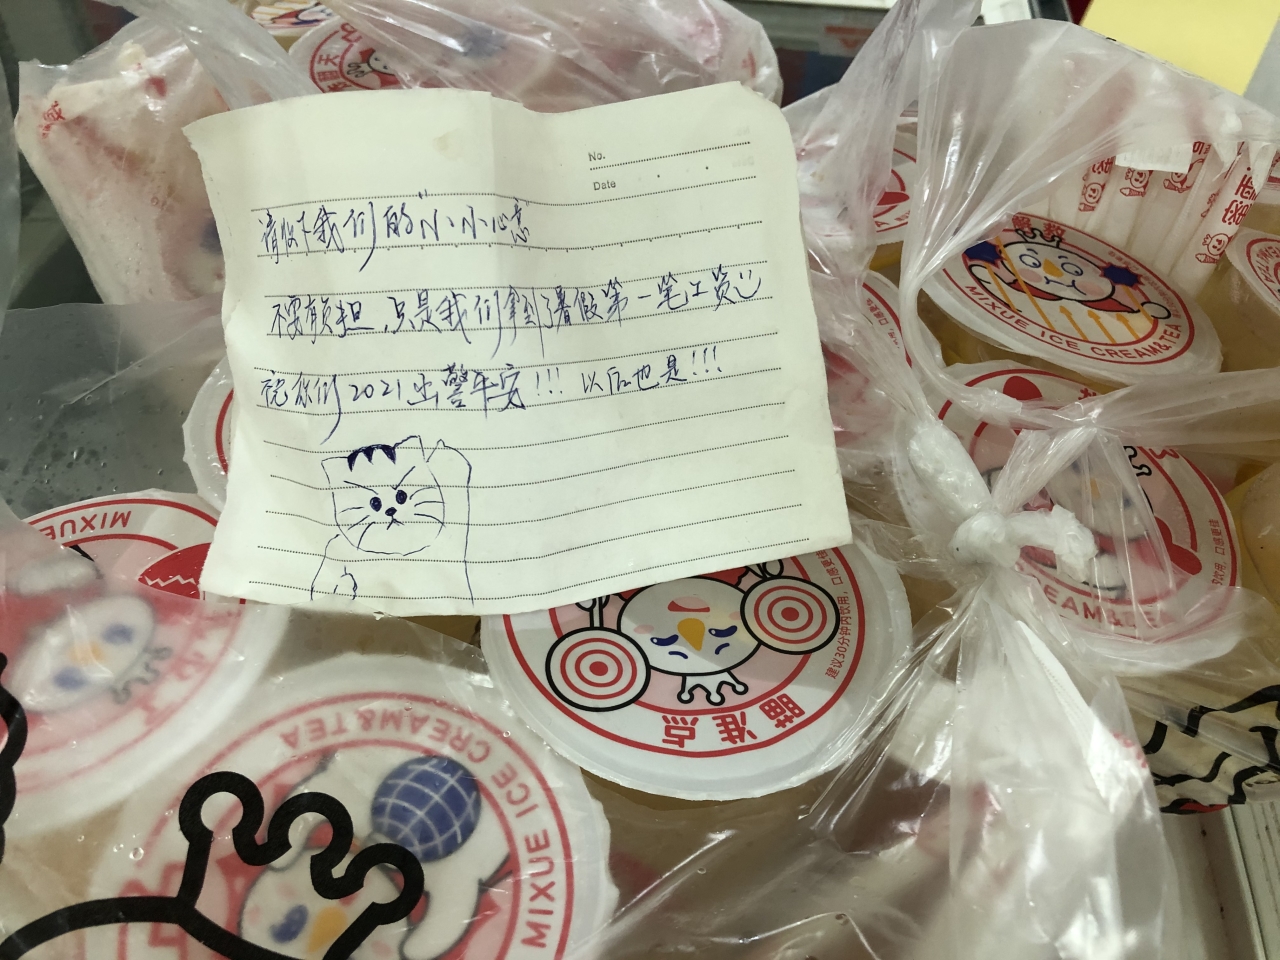 No.
Date
请收下我们的"小小心意
不要有负担，只是我们拿到了暑假第一笔工资
祝你们2021出警平安!!! 以后也是!!!
MIXUE ICE CREAM&TEA
EAM&TEA
MIXUE
瞄准点
建议30分钟内饮用，口感更
MIXUE ICE CREAM&TEA